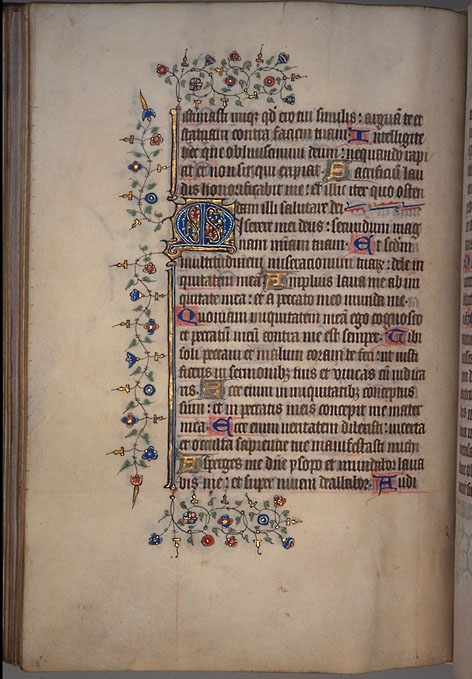 istimasti iniq; qd ero tui similis : arguā te et
statuam contra faciem tuam Intelligite
hec qui obliuiscimini deum : nequando rapi
at et non sit qui eripiat Sacrificiū lau
dis honorificabit me : et illic iter quo osten
dam illi salutare dei
Miserere mei deus : secundum mag
nam miāȝ tuam Et scdm
multitudinem miseracionum tuaꝝ : dele in
iquitatem meā Amplius laua me ab ini
quitate mea : et a peccato meo munda me
Quoniam iniquitatem meā ego cognosco
et peccatū meū contra me est semper Tibi
soli peccaui et malum coram te feci : ut iusti
ficeris in sermonibȝ tuis et vincas cū iudica
ris Ecce enim in iniquitatibȝ conceptus
sum : et in peccatis meis concepit me mater
mea Ecce enim ueritatem dilexisti : incerta
et occulta sapiencie tue manifestasti michi
Asperges me dn̄e ysopo et mundabor laua
bis me : et super niuem dealbabor Audi